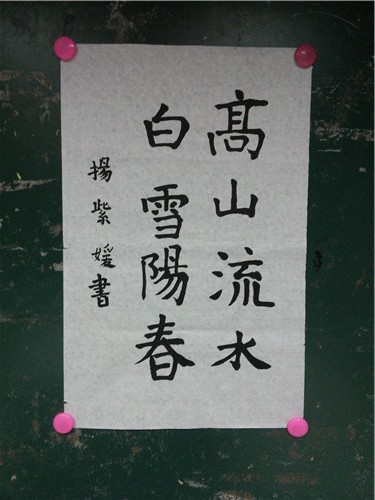 髙山流水
白雪陽春
揚紫媛書